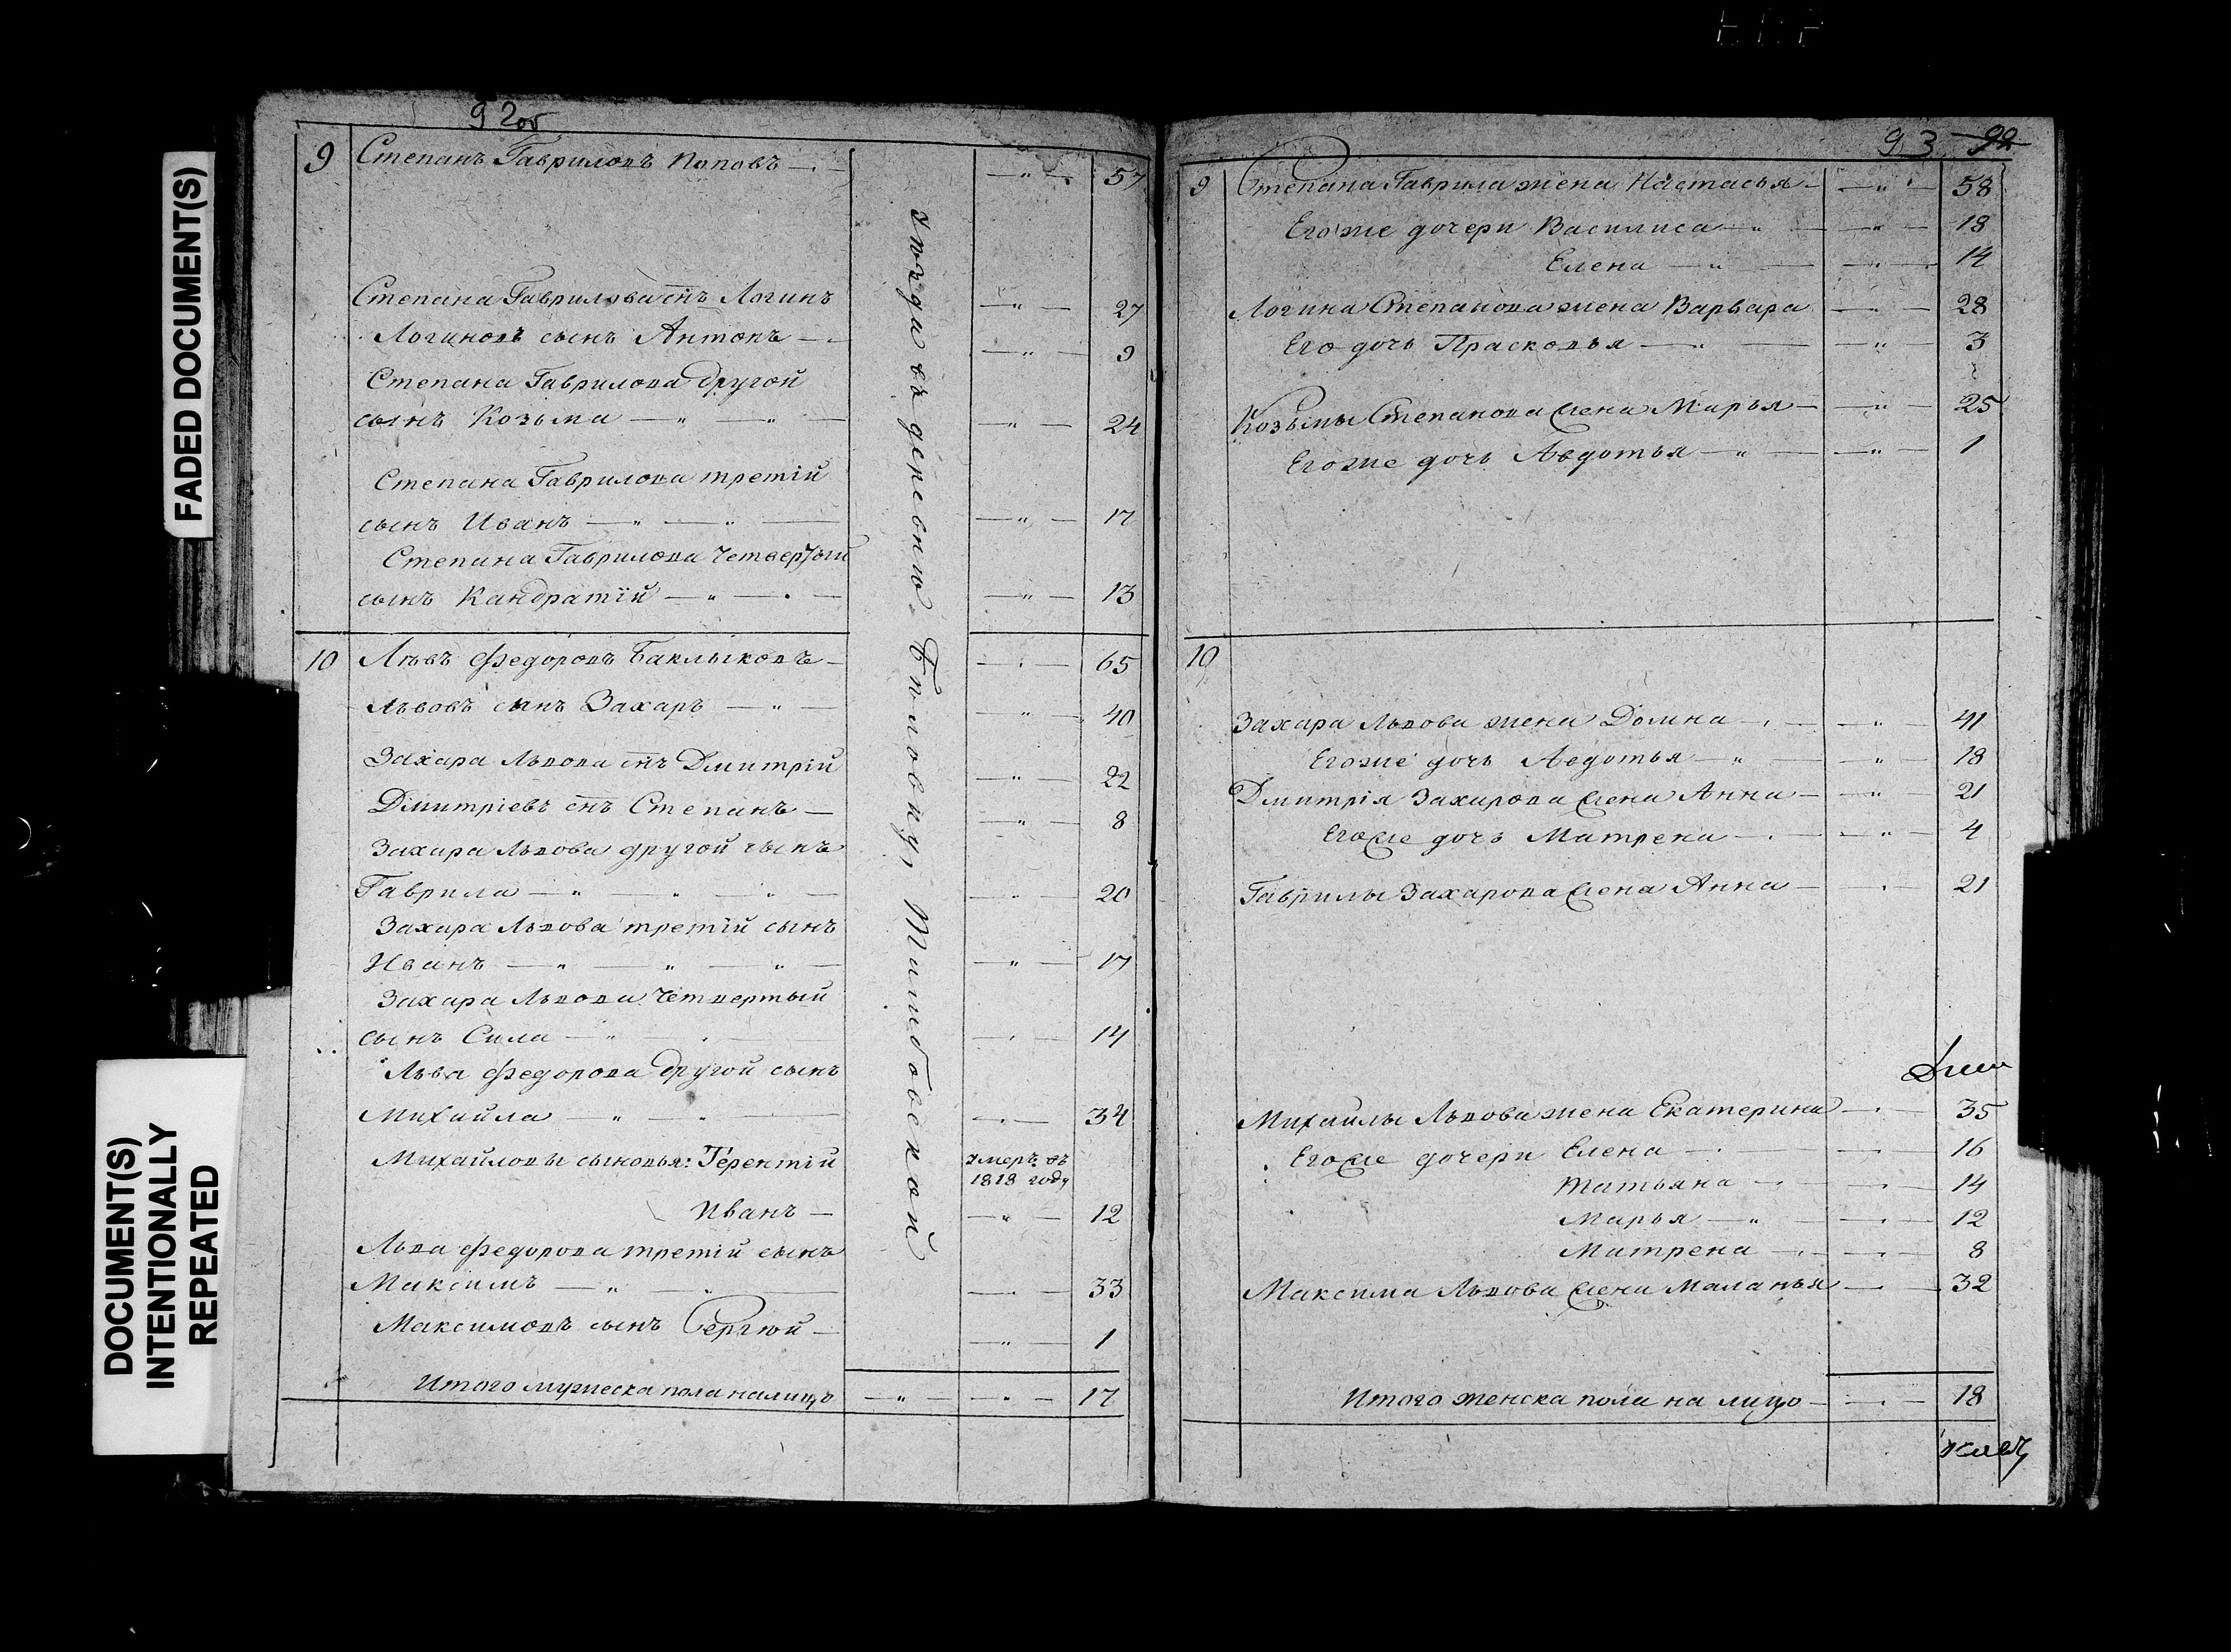 FADED DOCUMENT(S)
DOCUMENT(S)
INTENTIONALLY
REPEATED
92об
9 Степанъ Гавриловъ Поповъ — 57
Степана Гаврилова снъ Логинъ — " — 27
Логиновъ сынъ Антонъ — " — 9
Степана Гаврилова другой
сынъ Козьма — " — " — 24
Степана Гаврилова третій
сынъ Иванъ — " — " — 17
Степана Гаврилова четвертый
сынъ Кандратій — " — 13
10 Левъ Федоровъ — 65
Львовъ сынъ Захаръ — " — 40
Захара Львова снъ Дмитрій — " — 22
Дмитріевъ снъ Степанъ — " — 8
Захара Львова другой сынъ
Гаврила — " — " — 20
Захара Львова третій сынъ
Иванъ — " — " — " — 17
Захара Львова четвертый
сынъ Сила — " — 14
Льва Федорова другой сынъ
Михайла — " — 34
Михайловы сыновья: Терентій умеръ въ
1818 году
Иванъ — " — 12
Льва Федорова третій сынъ
Максимъ — " — 33
Максимовъ сынъ Сергѣй — " — 1
Итого мужеска пола налицо — " — 17
въ деревню
93 92
9 Степана Гаврила жена Настасья — " — 58
Егоже дочери Василиса — " — 18
Елена — " — 14
Логина Степанова жена Варвара — 28
Его дочь Прасковья — " — 3
Козьмы Степанова жена Марья — " — 25
Егоже дочь Авдотья — " — 1
10
Захара Львова жена Домна — " — 41
Егоже дочь Авдотья — " — 18
Дмитрія Захарова жена Анна — " — 21
Егоже дочь Матрена — " — 4
Гаврилы Захарова жена Анна — 21
Михайлы Львова жена Екатерина — 35
Егоже дочери Елена — 16
Татьяна — 14
Марья — " — 12
Матрена — 8
Максима Львова жена Маланья — 32
Итого женска пола на лицо — 18